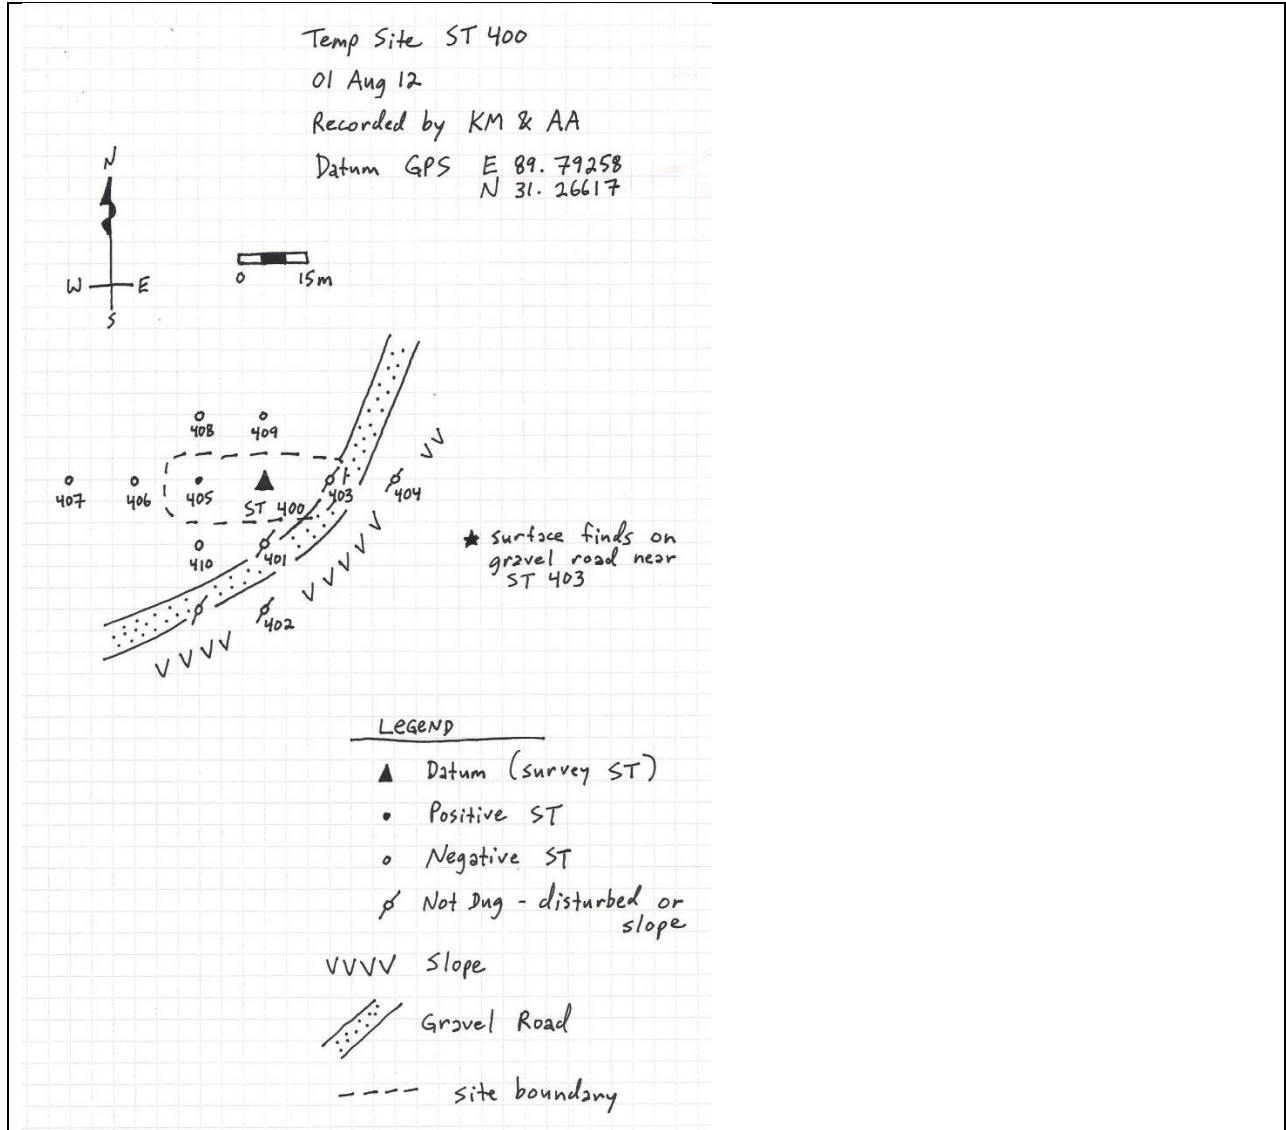 Temp Site ST 400
01 Aug 12
Recorded by KM & AA
Datum GPS E 89.79258
N 31.26617
N
W E
S
0 15m
408 409
407 406 405 ST 400 403 404
410 401
402
★ surface finds on
gravel road near
ST 403
LEGEND
Datum (survey ST)
Positive ST
Negative ST
Not Dug - disturbed or
slope
VVVV Slope
Gravel Road
site boundary